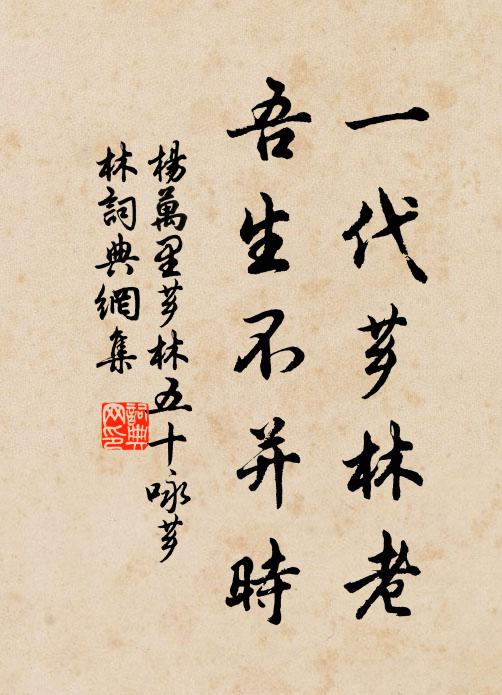 一代芗林老
吾生不并時
楊萬里芗林五十咏芗
林詞典網集
詞典网印